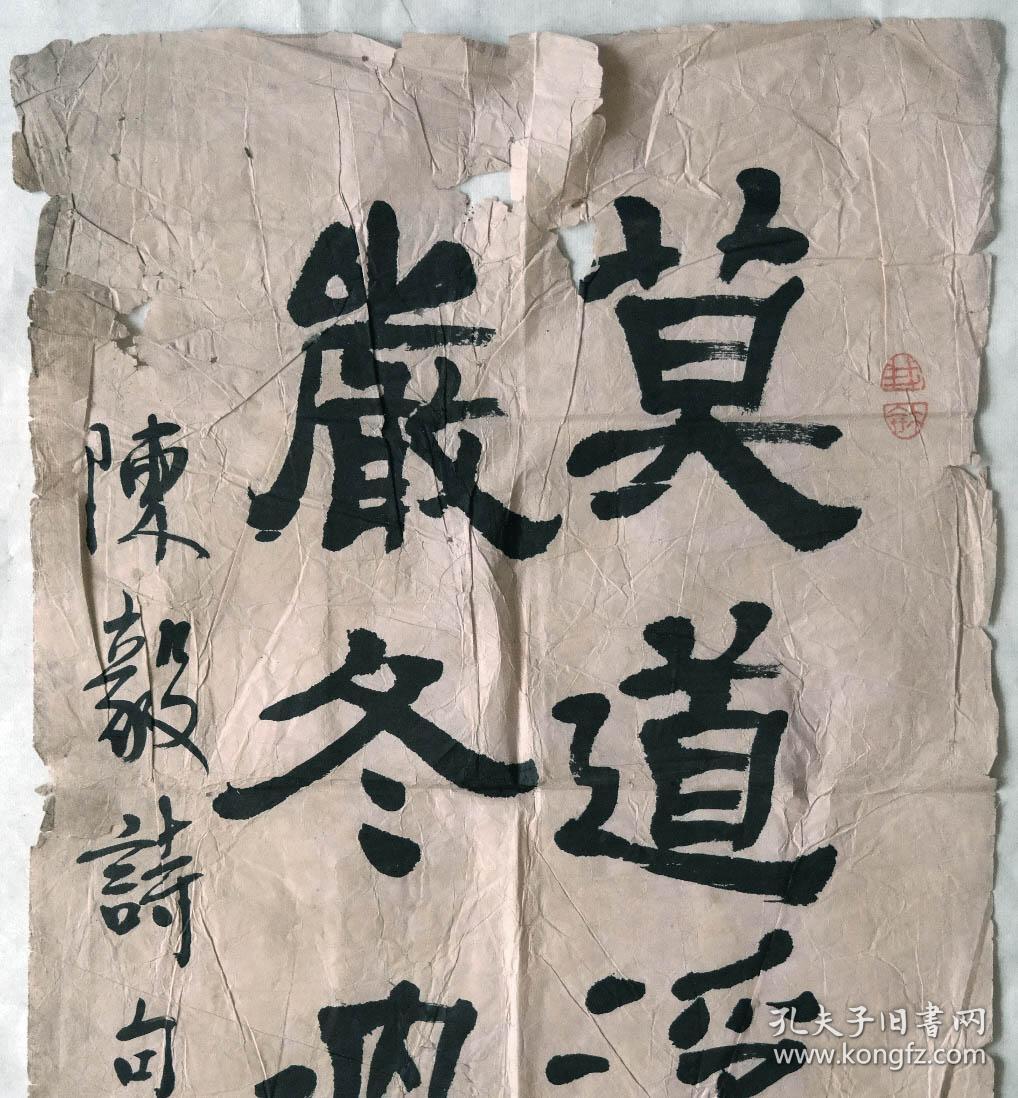 莫道浮
嚴冬
陳毅詩句
孔夫子旧書网
www.kongfz.com